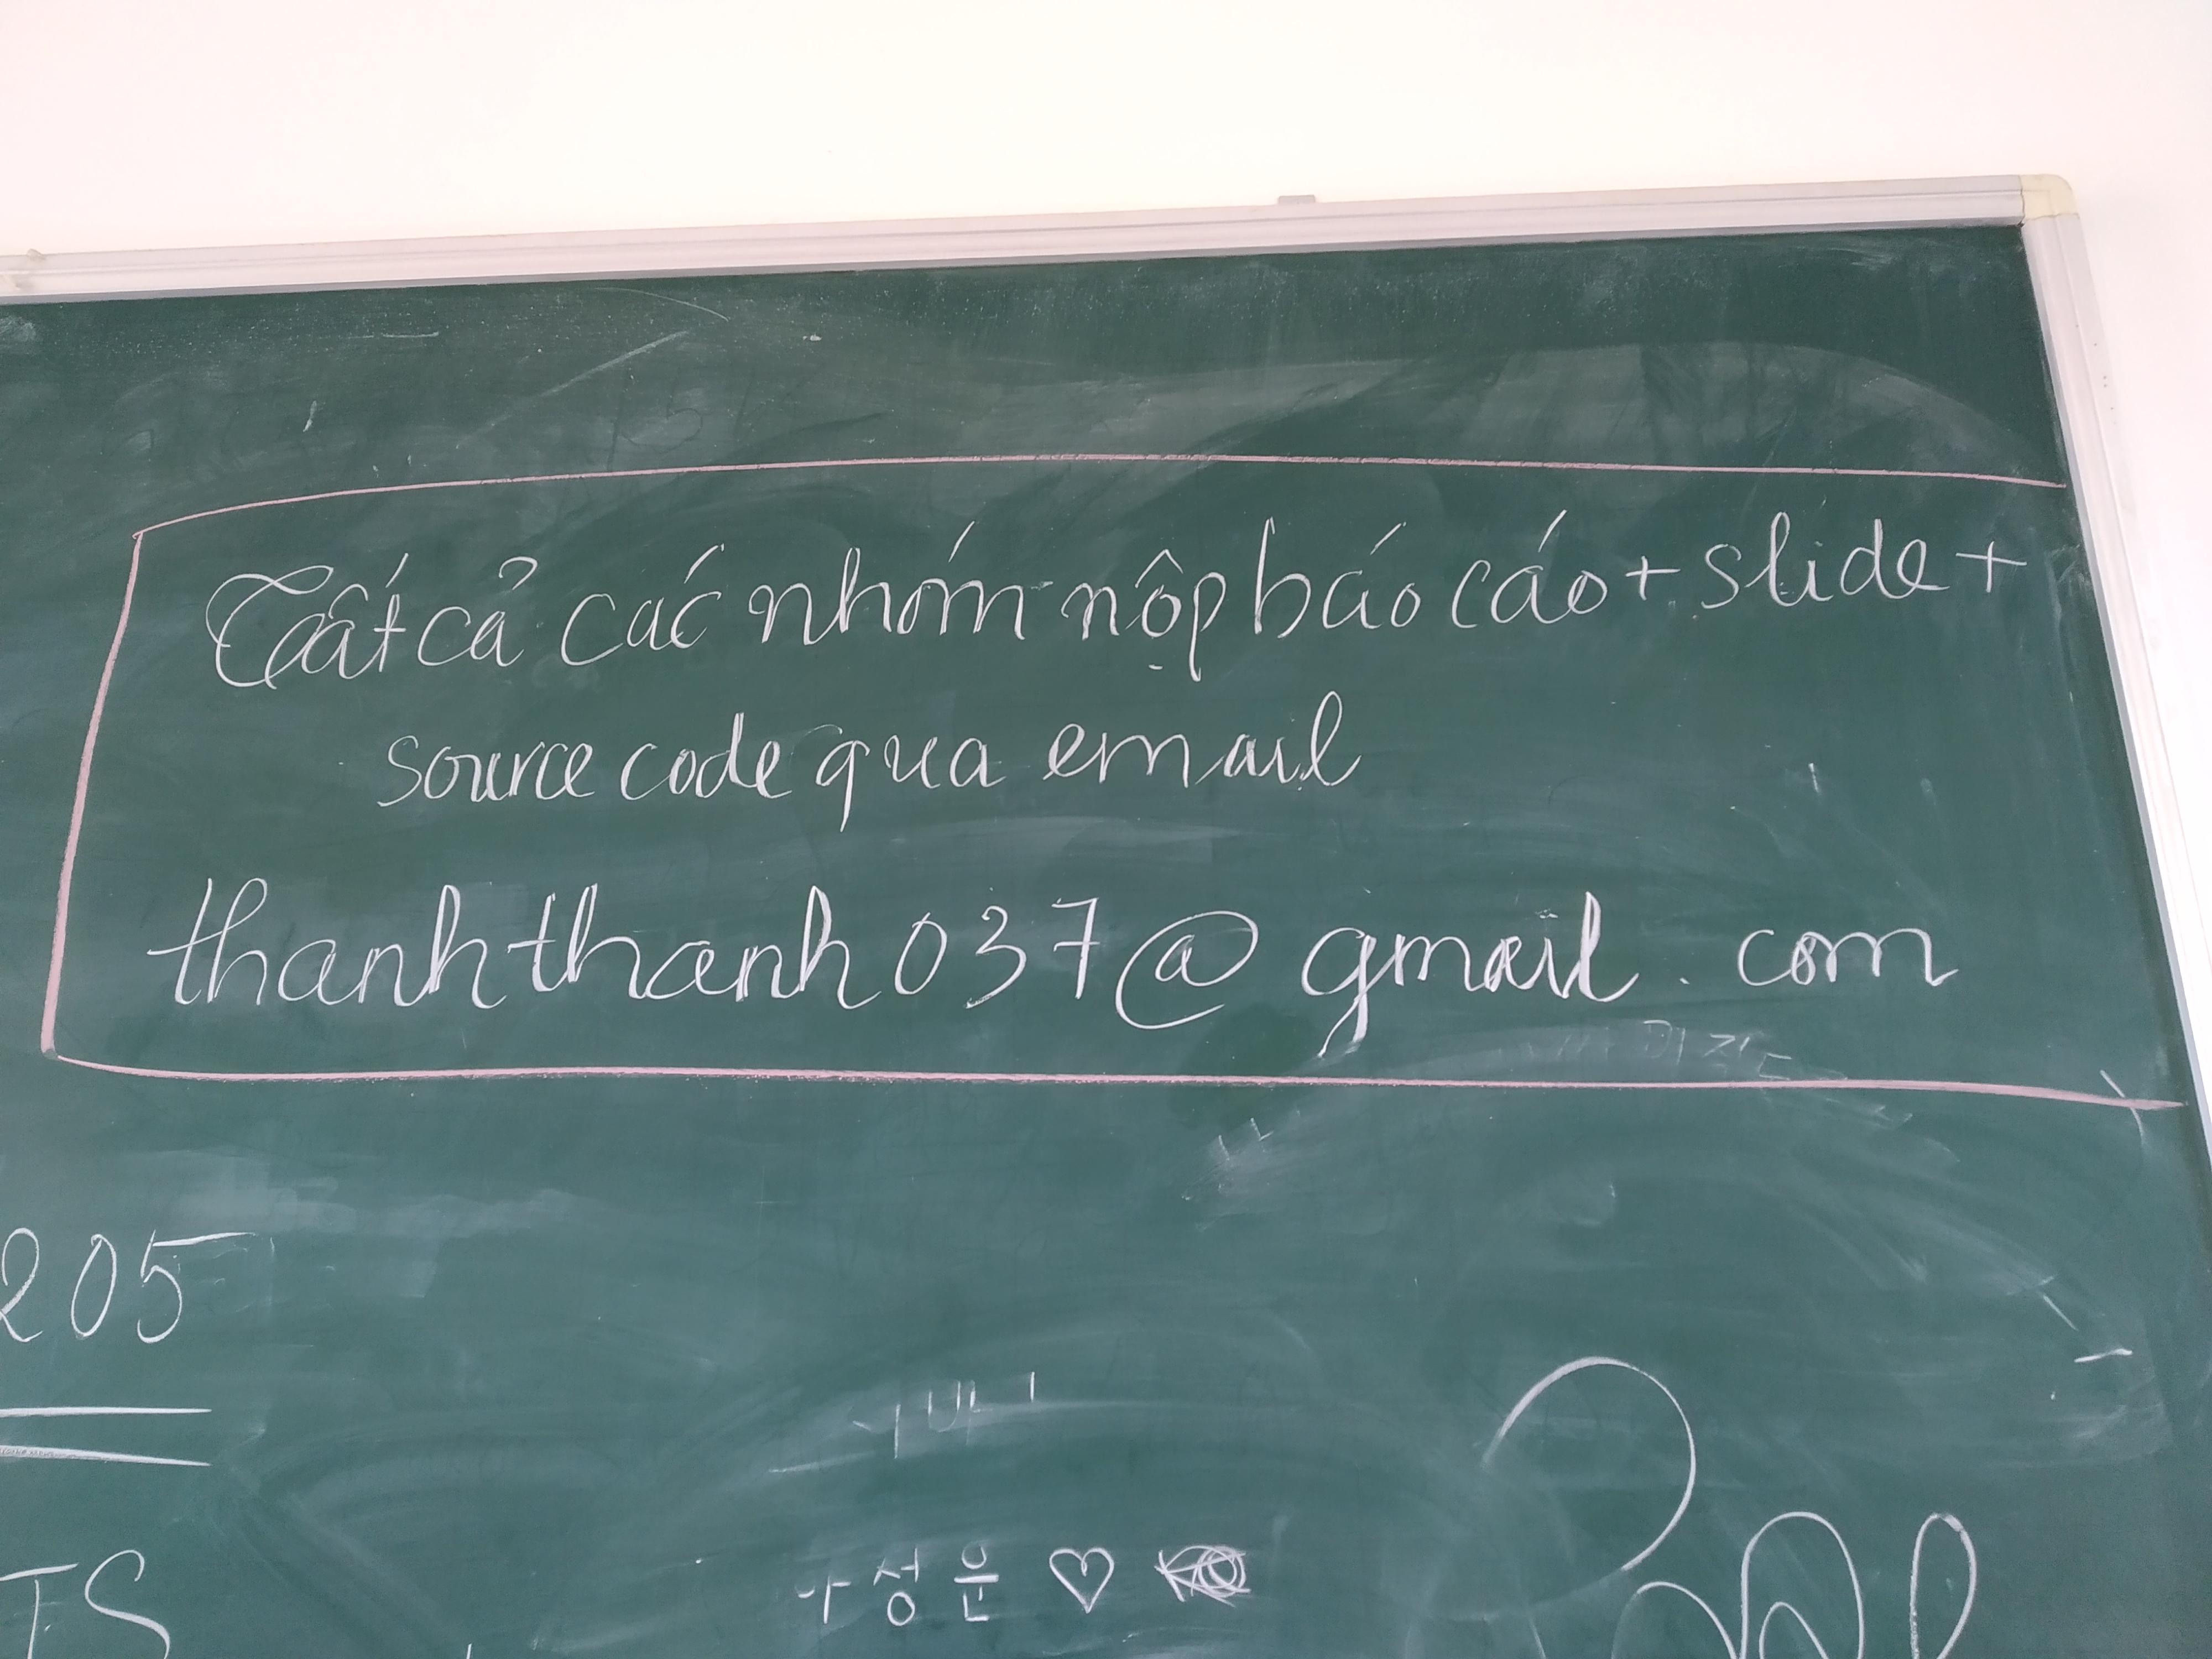 Tất cả các nhóm nộp báo cáo + slide +
source code qua email
thanhthanh037@gmail.com
205
TS
성운 ♡